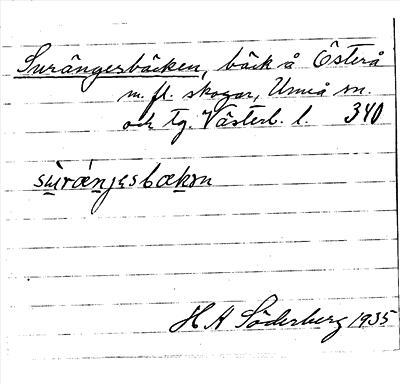 Surängesbäcken, bäck å Österå
m. fl. skogar, Umeå sn.
och tg. Västerb. l. 340
H A Söderberg 1935